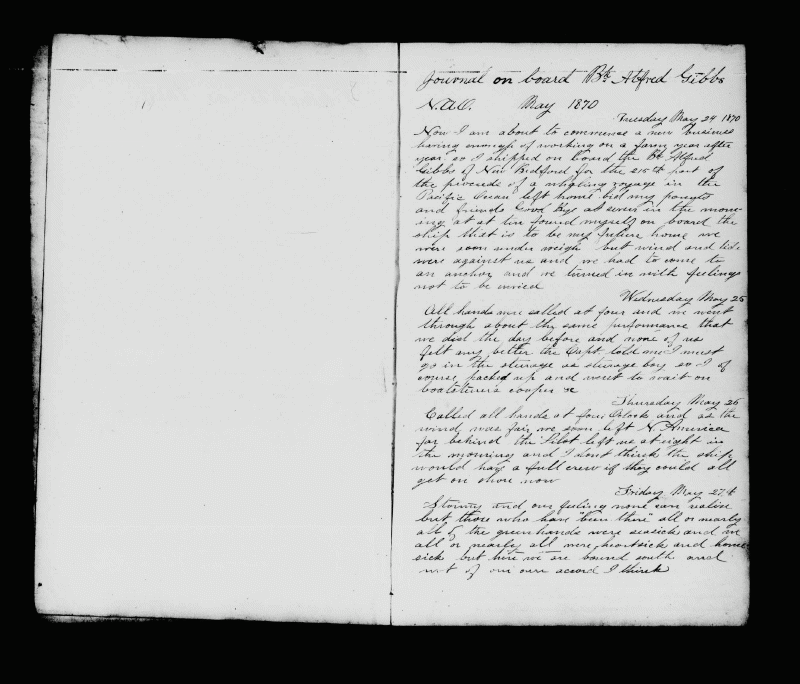 Journal on board Bk Alfred Gibbs
N.A.O. May 1870
Tuesday May 24 1870
Now I am about to commence a new business
having enough of working on a farm year after
year so I shipped on board the Bk Alfred
Gibbs of New Bedford for the 215th part of
the proceeds of a whaling voyage in the
Pacific Ocean left home bid my parents
and friends Good Bye at seven in the morn-
ing at at ten found myself on board the
ship that is to be my future home we
were soon under weigh but wind and tide
were against us and we had to come to
an anchor and we turned in with feelings
not to be envied
Wednesday May 25
All hands were called at four and we went
through about the same performance that
we did the day before and none of us
felt any better the Capt. told me I must
go in the steerage as steerage boy so I of
course packed up and went to wait on
boatsteerers cooper &c
Thursday May 26
Called all hands at four Oclock and as the
wind was fair we soon left N. America
far behind the Pilot left us at eight in
the morning and I dont think the ship
would have a full crew if they could all
get on shore now
Friday May 27th
Stormy and our feeling none can realise
but those who have "been there" all or nearly
all of the greenhands were seasick and we
all or nearly all were heartsick and home
sick but here we are bound south and
not of our own accord I think